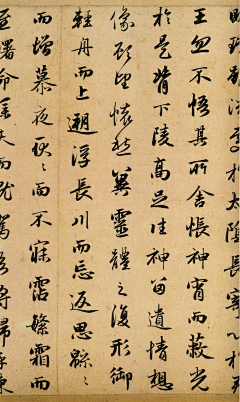 於太陰長寄心於君
王忽不悟其所舍悵神宵而蔽光
於是背下陵高足往神留遺情想
像顧望懷愁冀靈體之復形御
輕舟而上遡浮長川而忘返思緜〻
而增慕夜耿〻而不寐霑繁霜而
至曙命僕夫而就駕吾將歸乎東